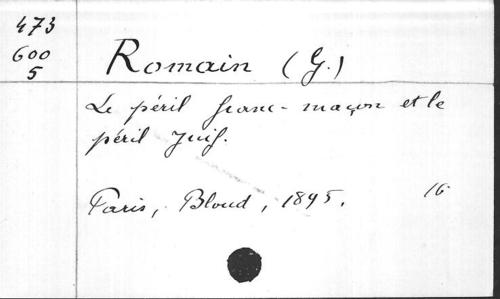 473
600
5
Romain (G.)
Le péril franc-maçon et le
péril Juif.
Paris, Bloud, 1895. 16